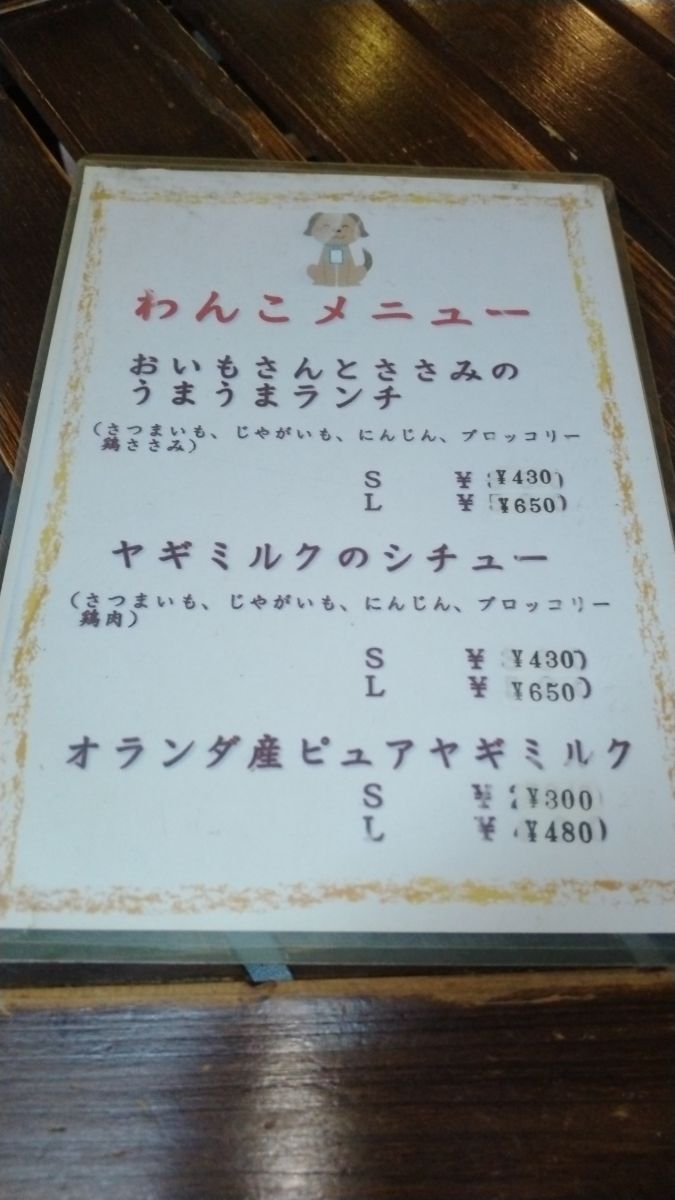 わんこメニュー
おいもさんとささみの
うまうまランチ
(さつまいも、じゃがいも、にんじん、ブロッコリー
鶏ささみ)
S ¥ ¥430)
L ¥ ¥650)
ヤギミルクのシチュー
(さつまいも、じゃがいも、にんじん、ブロッコリー
鶏肉)
S ¥ ¥430)
L ¥ ¥650)
オランダ産ピュアヤギミルク
S ¥ ¥300
L ¥ ¥480)